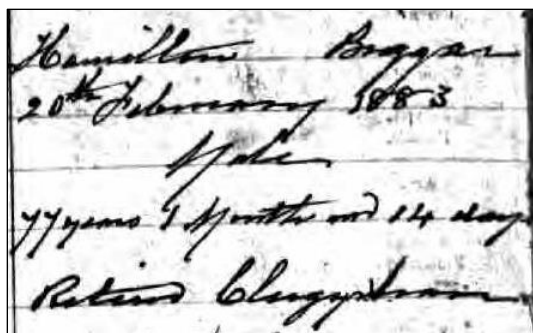 Hamilton Biggar
20th February 1883
Male
77 years 1 Month and 14 days
Retired Clergyman